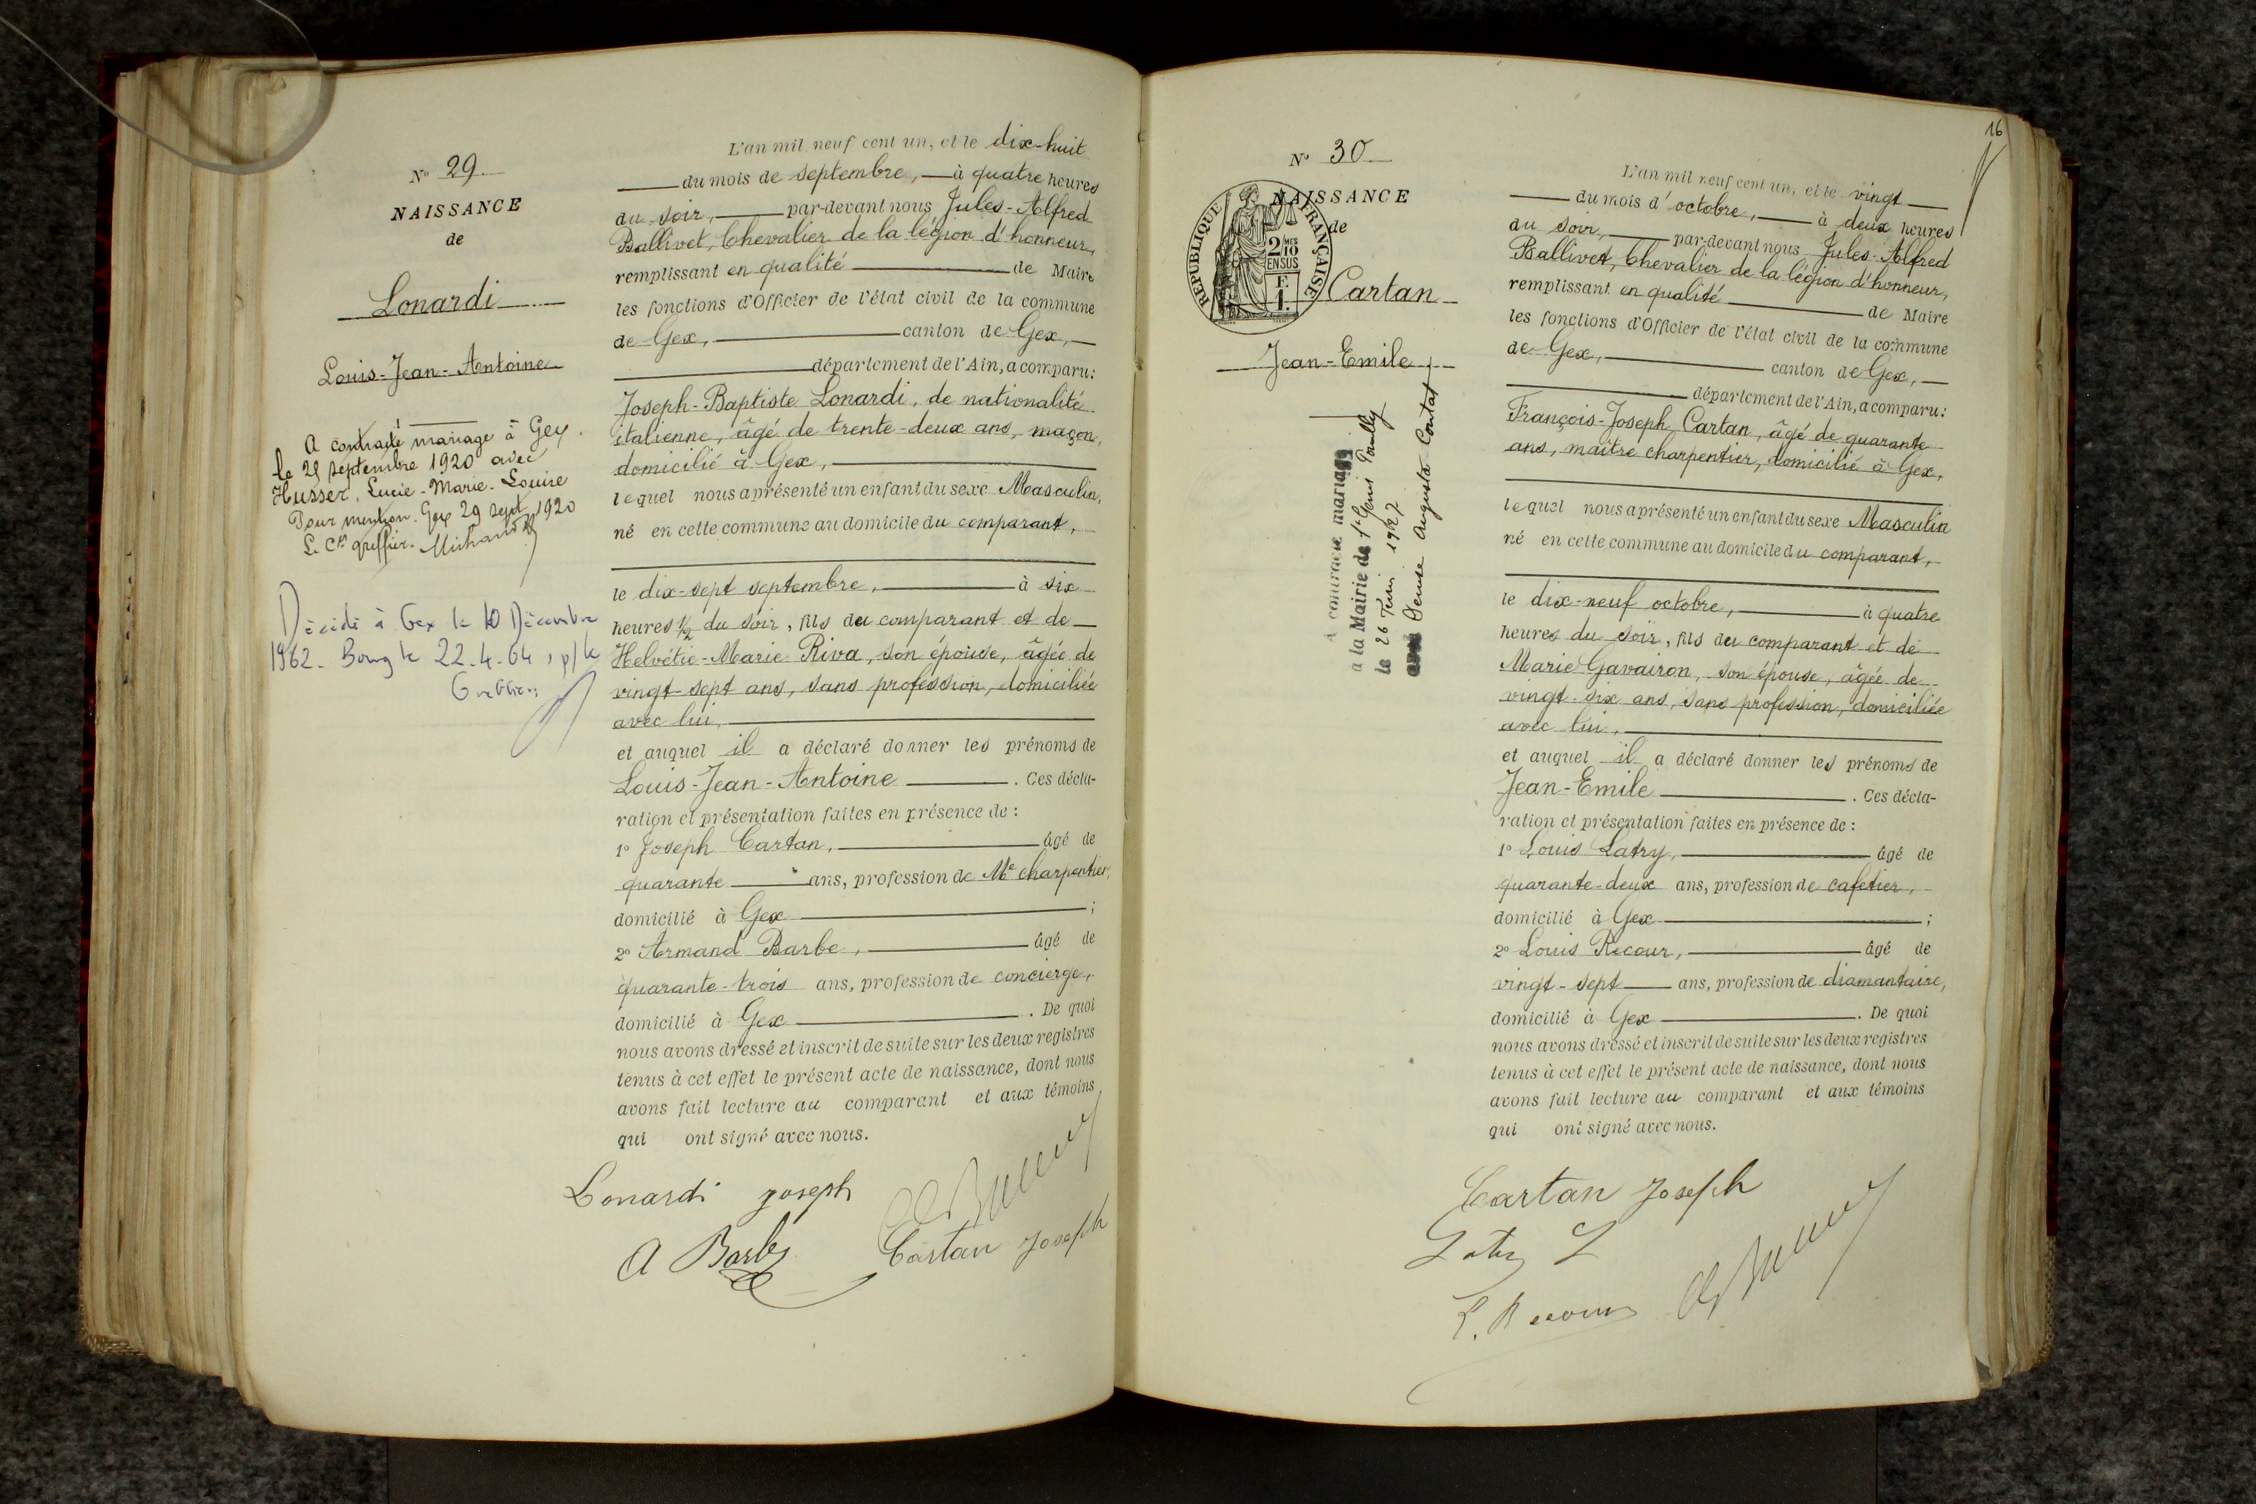 N° 29
NAISSANCE
de
Lonardi
Louis-Jean-Antoine
A contracté mariage à Gex
le 29 septembre 1920 avec
Husser, Lucie-Marie-Louise
Pour mention. Gex 29 sept 1920
Le Cis greffier.
Décédé à Gex le 10 Décembre
1962. Bourg le 22.4.64, p/le
Greffier
L'an mil neuf cent un, et le dix-huit
du mois de septembre, à quatre heures
du soir, par-devant nous Jules-Alfred
Ballivet, Chevalier de la légion d'honneur,
remplissant en qualité de Maire
les fonctions d'Officier de l'état civil de la commune
de Gex, canton de Gex,
département de l'Ain, a comparu:
Joseph-Baptiste Lonardi, de nationalité
italienne, âgé de trente-deux ans, maçon,
domicilié à Gex,
lequel nous a présenté un enfant du sexe Masculin,
né en cette commune au domicile du comparant,
le dix-sept septembre, à six
heures 1/2 du soir, fils du comparant et de
Helvétie-Marie Riva, son épouse, âgée de
vingt-sept ans, sans profession, domiciliée
avec lui,
et auquel il a déclaré donner les prénoms de
Louis-Jean-Antoine . Ces décla-
ration et présentation faites en présence de :
1° Joseph Cartan, âgé de
quarante ans, profession de Me charpentier,
domicilié à Gex ;
2° Armand Barbe, âgé de
quarante-trois ans, profession de concierge,
domicilié à Gex . De quoi
nous avons dressé et inscrit de suite sur les deux registres
tenus à cet effet le présent acte de naissance, dont nous
avons fait lecture au comparant et aux témoins
qui ont signé avec nous.
Lonardi Joseph
A Barbe Cartan Joseph
16
N° 30
NAISSANCE
de
RÉPUBLIQUE FRANÇAISE
2/10
EN SUS
F.
1.
Cartan
Jean-Emile
A contracté mariage
a la Mairie de St Genis Pouilly
le 26 1927
avec Denise Augusta Contat
L'an mil neuf cent un, et le vingt
du mois d'octobre, à deux heures
du soir, par-devant nous Jules-Alfred
Ballivet, Chevalier de la légion d'honneur,
remplissant en qualité de Maire
les fonctions d'Officier de l'état civil de la commune
de Gex, canton de Gex,
département de l'Ain, a comparu:
François-Joseph Cartan, âgé de quarante
ans, maître charpentier, domicilié à Gex,
lequel nous a présenté un enfant du sexe Masculin
né en cette commune au domicile du comparant,
le dix-neuf octobre, à quatre
heures du soir, fils du comparant et de
Marie Gavairon, son épouse, âgée de
vingt-six ans, sans profession, domiciliée
avec lui,
et auquel il a déclaré donner les prénoms de
Jean-Emile . Ces décla-
ration et présentation faites en présence de :
1° Louis Latry, âgé de
quarante-deux ans, profession de cafetier,
domicilié à Gex ;
2° Louis Recour, âgé de
vingt-sept ans, profession de diamantaire,
domicilié à Gex . De quoi
nous avons dressé et inscrit de suite sur les deux registres
tenus à cet effet le présent acte de naissance, dont nous
avons fait lecture au comparant et aux témoins
qui ont signé avec nous.
Cartan Joseph
Latry L
L. Recour